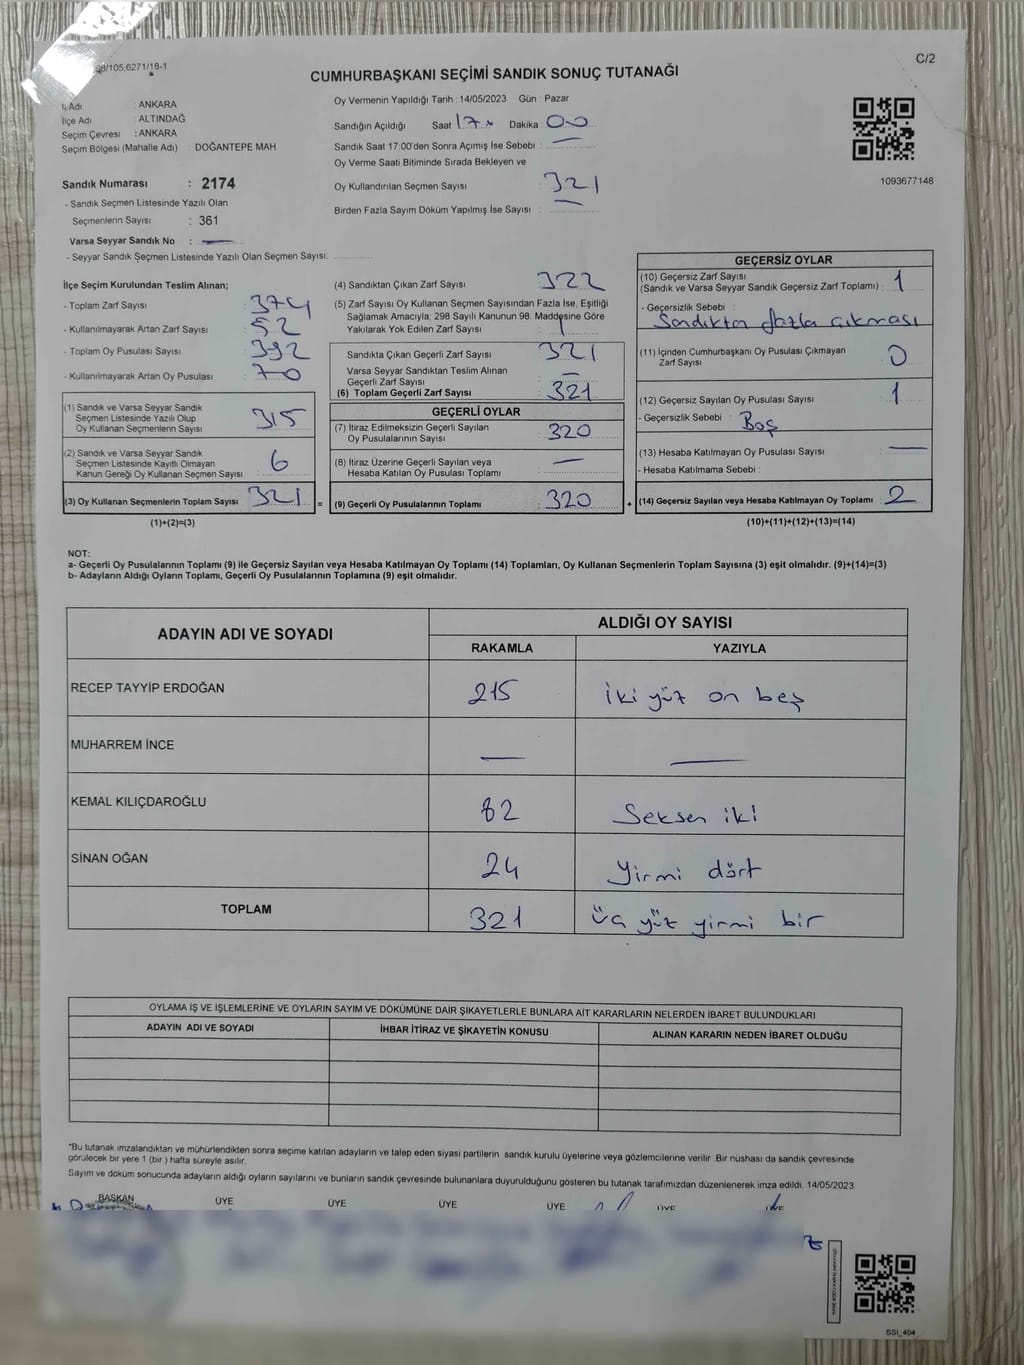 C/2
CUMHURBAŞKANI SEÇİMİ SANDIK SONUÇ TUTANAĞI
İl Adı : ANKARA
İlçe Adı : ALTINDAĞ
Seçim Çevresi : ANKARA
Seçim Bölgesi (Mahalle Adı) : DOĞANTEPE MAH.
Sandık Numarası : 2174
- Sandık Seçmen Listesinde Yazılı Olan
Seçmenlerin Sayısı : 361
Varsa Seyyar Sandık No : —
- Seyyar Sandık Seçmen Listesinde Yazılı Olan Seçmen Sayısı:
Oy Vermenin Yapıldığı Tarih : 14/05/2023 Gün : Pazar
Sandığın Açıldığı Saat 17 Dakika : 00
Sandık Saat 17:00'den Sonra Açımış İse Sebebi : —
Oy Verme Saati Bitiminde Sırada Bekleyen ve
Oy Kullandırılan Seçmen Sayısı 321
Birden Fazla Sayım Döküm Yapılmış İse Sayısı : —
1093677148
İlçe Seçim Kurulundan Teslim Alınan;
- Toplam Zarf Sayısı 374
- Kullanılmayarak Artan Zarf Sayısı 52
- Toplam Oy Pusulası Sayısı 392
- Kullanılmayarak Artan Oy Pusulası 70
(1) Sandık ve Varsa Seyyar Sandık
Seçmen Listesinde Yazılı Olup
Oy Kullanan Seçmenlerin Sayısı 315
(2) Sandık ve Varsa Seyyar Sandık
Seçmen Listesinde Kayıtlı Olmayan
Kanun Gereği Oy Kullanan Seçmen Sayısı 6
(3) Oy Kullanan Seçmenlerin Toplam Sayısı 321 =
(1)+(2)=(3)
(4) Sandıktan Çıkan Zarf Sayısı 322
(5) Zarf Sayısı Oy Kullanan Seçmen Sayısından Fazla İse, Eşitliği
Sağlamak Amacıyla; 298 Sayılı Kanunun 98. Maddesine Göre
Yakılarak Yok Edilen Zarf Sayısı : 1
Sandıkta Çıkan Geçerli Zarf Sayısı 321
Varsa Seyyar Sandıktan Teslim Alınan
Geçerli Zarf Sayısı —
(6) Toplam Geçerli Zarf Sayısı 321
GEÇERLİ OYLAR
(7) İtiraz Edilmeksizin Geçerli Sayılan
Oy Pusulalarının Sayısı 320
(8) İtiraz Üzerine Geçerli Sayılan veya
Hesaba Katılan Oy Pusulaları Toplamı —
(9) Geçerli Oy Pusulalarının Toplamı 320 +
GEÇERSİZ OYLAR
(10) Geçersiz Zarf Sayısı
(Sandık ve Varsa Seyyar Sandık Geçersiz Zarf Toplamı) : 1
- Geçersizlik Sebebi :
Sandıktan fazla çıkması
(11) İçinden Cumhurbaşkanı Oy Pusulası Çıkmayan
Zarf Sayısı 0
(12) Geçersiz Sayılan Oy Pusulası Sayısı 1
- Geçersizlik Sebebi : Boş
(13) Hesaba Katılmayan Oy Pusulası Sayısı —
- Hesaba Katılmama Sebebi :
(14) Geçersiz Sayılan veya Hesaba Katılmayan Oy Toplamı : 2
(10)+(11)+(12)+(13)=(14)
NOT:
a- Geçerli Oy Pusulalarının Toplamı (9) ile Geçersiz Sayılan veya Hesaba Katılmayan Oy Toplamı (14) Toplamları, Oy Kullanan Seçmenlerin Toplam Sayısına (3) eşit olmalıdır. (9)+(14)=(3)
b- Adayların Aldığı Oyların Toplamı, Geçerli Oy Pusulalarının Toplamına (9) eşit olmalıdır.
ADAYIN ADI VE SOYADI
ALDIĞI OY SAYISI
RAKAMLA YAZIYLA
RECEP TAYYİP ERDOĞAN 215 iki yüz on beş
MUHARREM İNCE — —
KEMAL KILIÇDAROĞLU 82 Seksen iki
SİNAN OĞAN 24 Yirmi dört
TOPLAM 321 üç yüz yirmi bir
OYLAMA İŞ VE İŞLEMLERİNE VE OYLARIN SAYIM VE DÖKÜMÜNE DAİR ŞİKAYETLERLE BUNLARA AİT KARARLARIN NELERDEN İBARET BULUNDUKLARI
ADAYIN ADI VE SOYADI İHBAR İTİRAZ VE ŞİKAYETİN KONUSU ALINAN KARARIN NEDEN İBARET OLDUĞU
*Bu tutanak imzalandıktan ve mühürlendikten sonra seçime katılan adayların ve talep eden siyasi partilerin sandık kurulu üyelerine veya gözlemcilerine verilir. Bir nüshası da sandık çevresinde
görülecek bir yere 1 (bir) hafta süreyle asılır.
Sayım ve döküm sonucunda adayların aldığı oyların sayılarını ve bunların sandık çevresinde bulunanlara duyurulduğunu gösteren bu tutanak tarafımızdan düzenlenerek imza edildi. 14/05/2023
BAŞKAN ÜYE ÜYE ÜYE ÜYE ÜYE
SSI_404